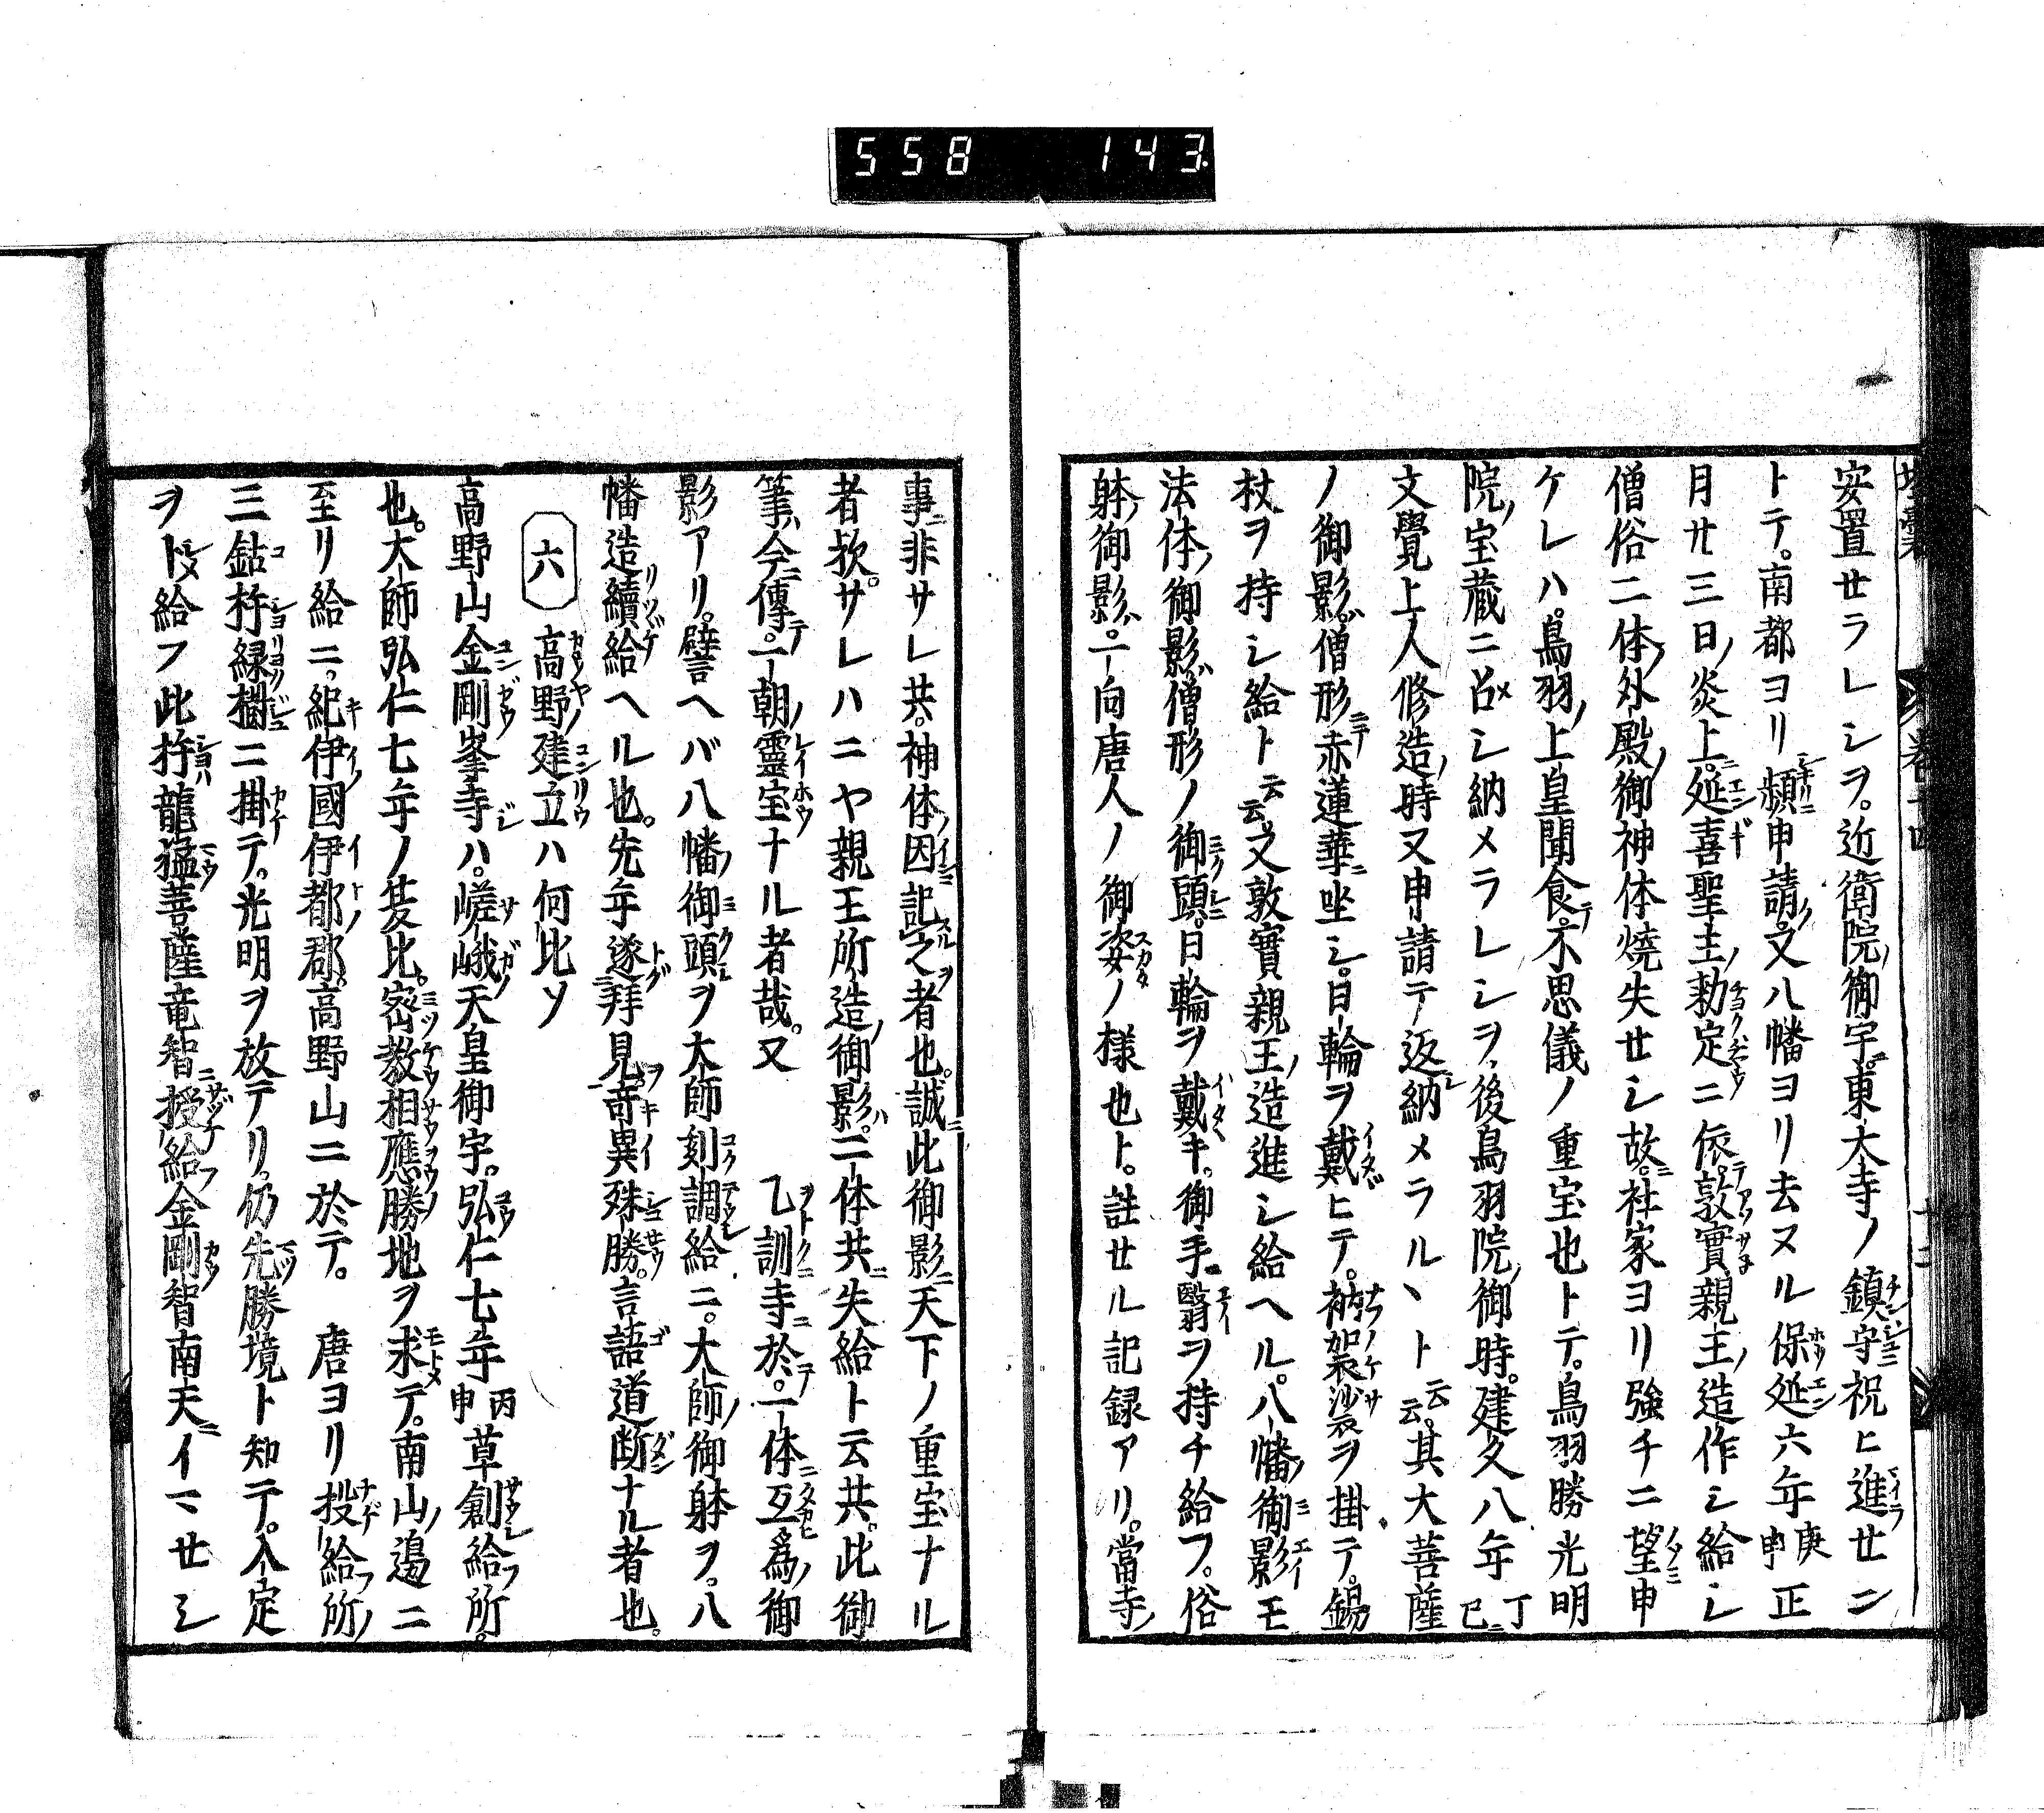 558 143
安置セラレシヲ。近衛院ノ御宇ニ。東大寺ノ鎮守ニ祝ヒ進セン
トテ。南都ヨリ頻ニ申請ク。又八幡ヨリ去ヌル保延六年庚申正
月廿三日ノ炎上ニ。延喜聖主ノ勅定ニ依テ。敦實親王ノ造作シ給シ
僧俗二体ノ外殿ノ御神体燒失セシ故ニ。社家ヨリ強チニ望申
ケレハ。鳥羽ノ上皇聞食テ。不思儀ノ重宝也トテ。鳥羽勝光明
院ノ宝蔵ニ召シ納メラレシヲ。後鳥羽院ノ御時。建久八年丁巳ニ
文覺上人修造ノ時又申請テ返納メラルヽト云云。其大菩薩
ノ御影ハ。僧形ニテ赤蓮華ニ坐シ。日輪ヲ戴ヒテ。衲袈裟ヲ掛テ。錫
杖ヲ持シ給ト云云。又敦實親王ノ造進シ給ヘル。八幡ノ御影モ
法体ノ御影ハ。僧形ノ御頭ニ。日輪ヲ戴キ。御手ニ翳ヲ持チ給フ。俗
躰ノ御影ハ。一向唐人ノ御姿ノ様也ト。註セル記録アリ。當寺ノ
事ニ非サレ共。神体ノ因ニ記之者也。誠ニ此御影ニ天下ノ重宝ナル
者欤。サレハニヤ親王所造ノ御影ハ。二体共ニ失給ト云共。此御
筆ハ今ニ傳テ。一朝ノ靈宝ナル者哉。又 乙訓寺ニ於テ。一体ニ互爲ノ御
影アリ。譬ヘバ八幡ノ御頭ヲ大師刻調給ニ。大師ノ御躰ヲ。八
幡造續給ヘル也。先年遂拜見ヲ奇異殊勝。言語道断ナル者也。
六 高野ノ建立ハ何比ソ
高野山金剛峯寺ハ。嵯峨ノ天皇御宇。弘仁七年丙申草創給フ所。
也。大師弘仁七年ノ夏比。密教相應ノ勝地ヲ求テ。南山ノ邊ニ
至リ給ニ。紀伊國伊都郡。高野山ニ於テ。 唐ヨリ投給フ所ノ
三鈷杵緑樹ニ掛テ。光明ヲ放テリ。仍先勝境ト知テ。入定
ヲト給フ此杵ハ龍猛菩薩竜智ニ授給フ金剛智南天ニイマセシ